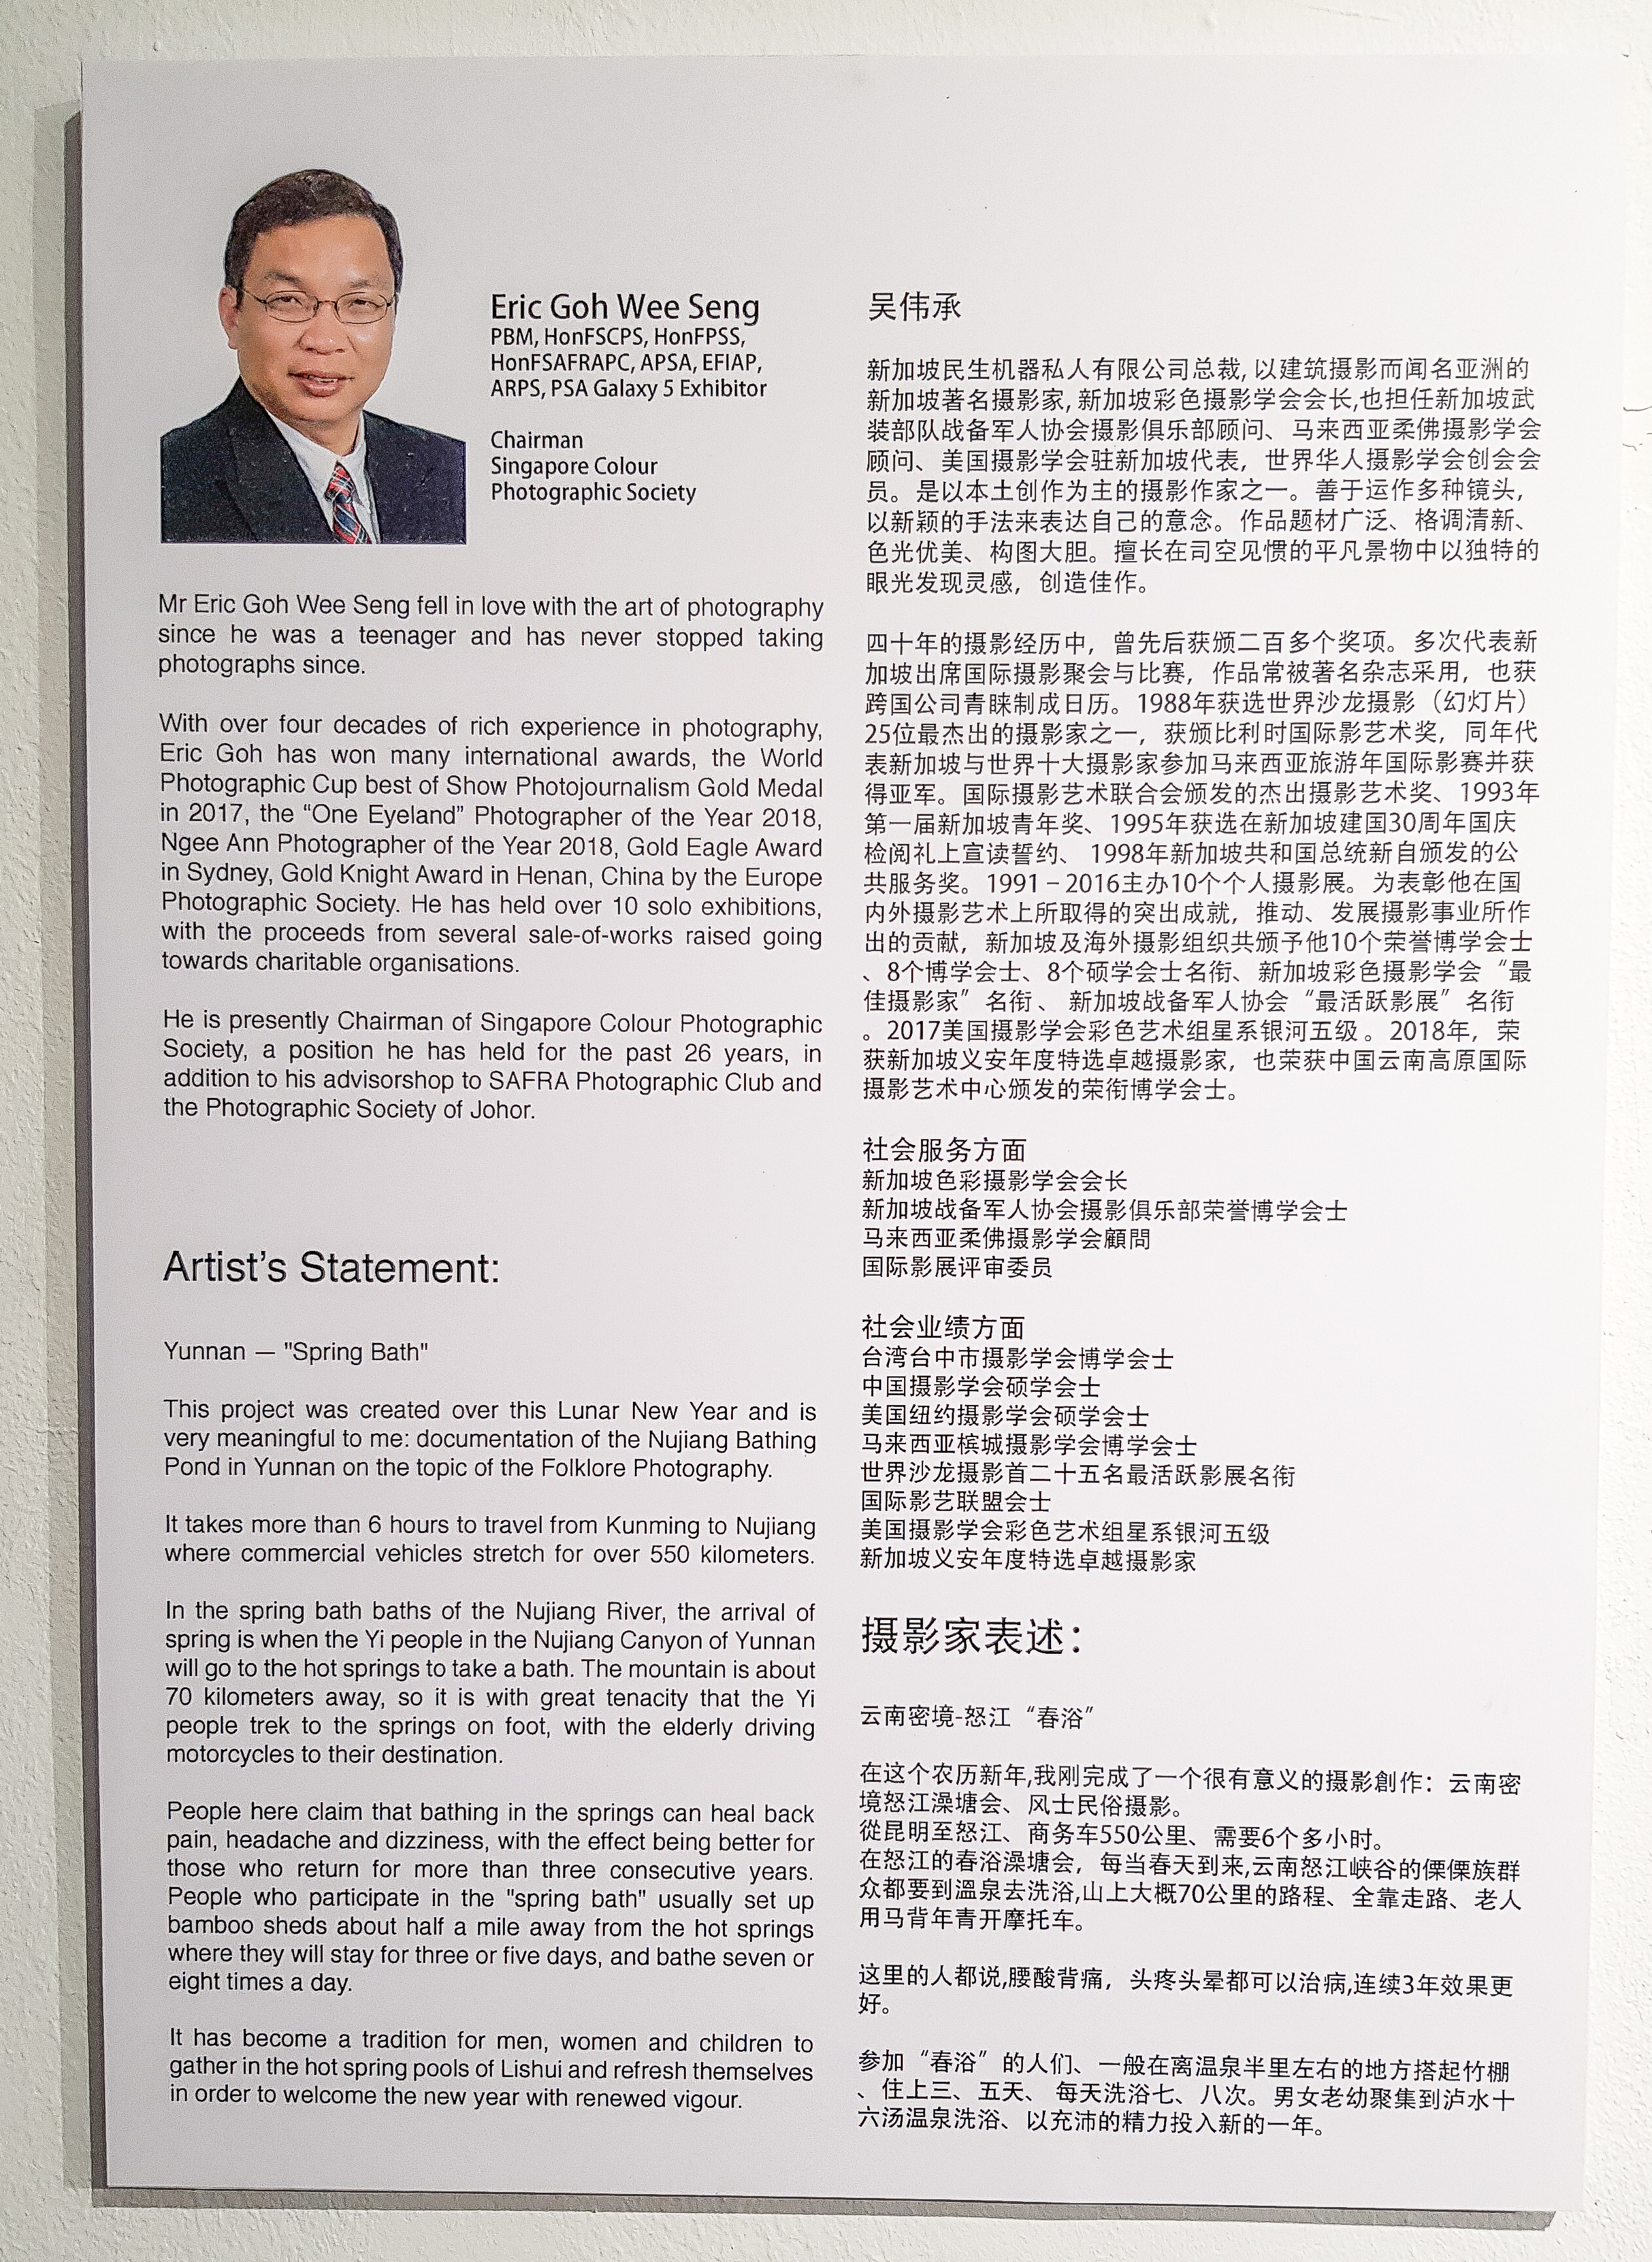 Eric Goh Wee Seng
PBM, HonFSCPS, HonFPSS,
HonFSAFRAPC, APSA, EFIAP,
ARPS, PSA Galaxy 5 Exhibitor
Chairman
Singapore Colour
Photographic Society
Mr Eric Goh Wee Seng fell in love with the art of photography
since he was a teenager and has never stopped taking
photographs since.
With over four decades of rich experience in photography,
Eric Goh has won many international awards, the World
Photographic Cup best of Show Photojournalism Gold Medal
in 2017, the “One Eyeland” Photographer of the Year 2018,
Ngee Ann Photographer of the Year 2018, Gold Eagle Award
in Sydney, Gold Knight Award in Henan, China by the Europe
Photographic Society. He has held over 10 solo exhibitions,
with the proceeds from several sale-of-works raised going
towards charitable organisations.
He is presently Chairman of Singapore Colour Photographic
Society, a position he has held for the past 26 years, in
addition to his advisorshop to SAFRA Photographic Club and
the Photographic Society of Johor.
Artist’s Statement:
Yunnan — "Spring Bath"
This project was created over this Lunar New Year and is
very meaningful to me: documentation of the Nujiang Bathing
Pond in Yunnan on the topic of the Folklore Photography.
It takes more than 6 hours to travel from Kunming to Nujiang
where commercial vehicles stretch for over 550 kilometers.
In the spring bath baths of the Nujiang River, the arrival of
spring is when the Yi people in the Nujiang Canyon of Yunnan
will go to the hot springs to take a bath. The mountain is about
70 kilometers away, so it is with great tenacity that the Yi
people trek to the springs on foot, with the elderly driving
motorcycles to their destination.
People here claim that bathing in the springs can heal back
pain, headache and dizziness, with the effect being better for
those who return for more than three consecutive years.
People who participate in the "spring bath" usually set up
bamboo sheds about half a mile away from the hot springs
where they will stay for three or five days, and bathe seven or
eight times a day.
It has become a tradition for men, women and children to
gather in the hot spring pools of Lishui and refresh themselves
in order to welcome the new year with renewed vigour.
吴伟承
新加坡民生机器私人有限公司总裁, 以建筑摄影而闻名亚洲的
新加坡著名摄影家, 新加坡彩色摄影学会会长,也担任新加坡武
装部队战备军人协会摄影俱乐部顾问、马来西亚柔佛摄影学会
顾问、美国摄影学会驻新加坡代表，世界华人摄影学会创会会
员。是以本土创作为主的摄影作家之一。善于运作多种镜头，
以新颖的手法来表达自己的意念。作品题材广泛、格调清新、
色光优美、构图大胆。擅长在司空见惯的平凡景物中以独特的
眼光发现灵感，创造佳作。
四十年的摄影经历中，曾先后获颁二百多个奖项。多次代表新
加坡出席国际摄影聚会与比赛，作品常被著名杂志采用，也获
跨国公司青睐制成日历。1988年获选世界沙龙摄影（幻灯片）
25位最杰出的摄影家之一，获颁比利时国际影艺术奖，同年代
表新加坡与世界十大摄影家参加马来西亚旅游年国际影赛并获
得亚军。国际摄影艺术联合会颁发的杰出摄影艺术奖、1993年
第一届新加坡青年奖、1995年获选在新加坡建国30周年国庆
检阅礼上宣读誓约、 1998年新加坡共和国总统新自颁发的公
共服务奖。1991 – 2016主办10个个人摄影展。为表彰他在国
内外摄影艺术上所取得的突出成就，推动、发展摄影事业所作
出的贡献，新加坡及海外摄影组织共颁予他10个荣誉博学会士
、8个博学会士、8个硕学会士名衔、新加坡彩色摄影学会“最
佳摄影家”名衔、 新加坡战备军人协会“最活跃影展”名衔
。2017美国摄影学会彩色艺术组星系银河五级。2018年，荣
获新加坡义安年度特选卓越摄影家，也荣获中国云南高原国际
摄影艺术中心颁发的荣衔博学会士。
社会服务方面
新加坡色彩摄影学会会长
新加坡战备军人协会摄影俱乐部荣誉博学会士
马来西亚柔佛摄影学会顧問
国际影展评审委员
社会业绩方面
台湾台中市摄影学会博学会士
中国摄影学会硕学会士
美国纽约摄影学会硕学会士
马来西亚槟城摄影学会博学会士
世界沙龙摄影首二十五名最活跃影展名衔
国际影艺联盟会士
美国摄影学会彩色艺术组星系银河五级
新加坡义安年度特选卓越摄影家
摄影家表述：
云南密境-怒江“春浴”
在这个农历新年,我刚完成了一个很有意义的摄影創作：云南密
境怒江澡塘会、风士民俗摄影。
從昆明至怒江、商务车550公里、需要6个多小时。
在怒江的春浴澡塘会，每当春天到来,云南怒江峡谷的傈傈族群
众都要到溫泉去洗浴,山上大概70公里的路程、全靠走路、老人
用马背年青开摩托车。
这里的人都说,腰酸背痛，头疼头晕都可以治病,连续3年效果更
好。
参加“春浴”的人们、一般在离温泉半里左右的地方搭起竹棚
、住上三、五天、 每天洗浴七、八次。男女老幼聚集到泸水十
六汤温泉洗浴、以充沛的精力投入新的一年。